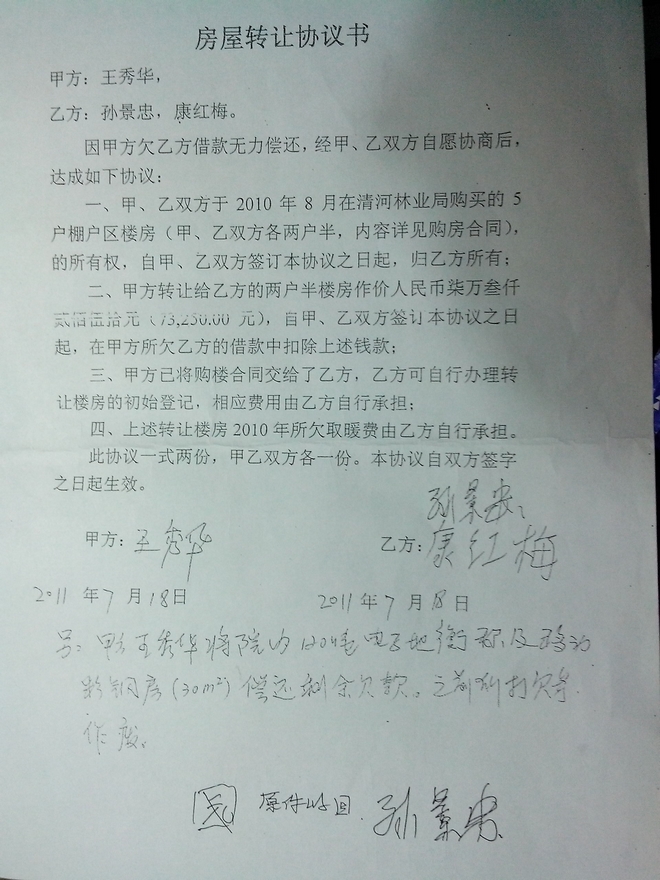 房屋转让协议书
甲方：王秀华，
乙方：孙景忠，康红梅。
因甲方欠乙方借款无力偿还，经甲、乙双方自愿协商后，
达成如下协议：
一、甲、乙双方于 2010 年 8 月在清河林业局购买的 5
户棚户区楼房（甲、乙双方各两户半，内容详见购房合同），
的所有权，自甲、乙双方签订本协议之日起，归乙方所有；
二、甲方转让给乙方的两户半楼房作价人民币柒万叁仟
贰佰伍拾元（73,250.00 元），自甲、乙双方签订本协议之日
起，在甲方所欠乙方的借款中扣除上述钱款；
三、甲方已将购楼合同交给了乙方，乙方可自行办理转
让楼房的初始登记，相应费用由乙方自行承担；
四、上述转让楼房 2010 年所欠取暖费由乙方自行承担。
此协议一式两份，甲乙双方各一份。本协议自双方签字
之日起生效。
孙景忠
甲方：王秀华 乙方：康红梅
2011 年 7 月 18 日 2011 年 7 月 18 日
另：甲方王秀华将院内120吨电子地衡称及移动
彩钢房（30m²）偿还剩余欠款。之前所打欠条
作废。
原件 孙景忠